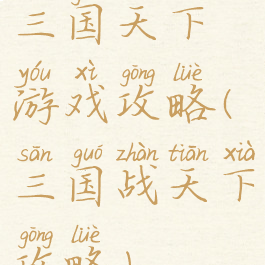 三国天下
yóu xì gōng lüè
游戏攻略(
sān guó zhàn tiān xià
三国战天下
gōng lüè
攻略)